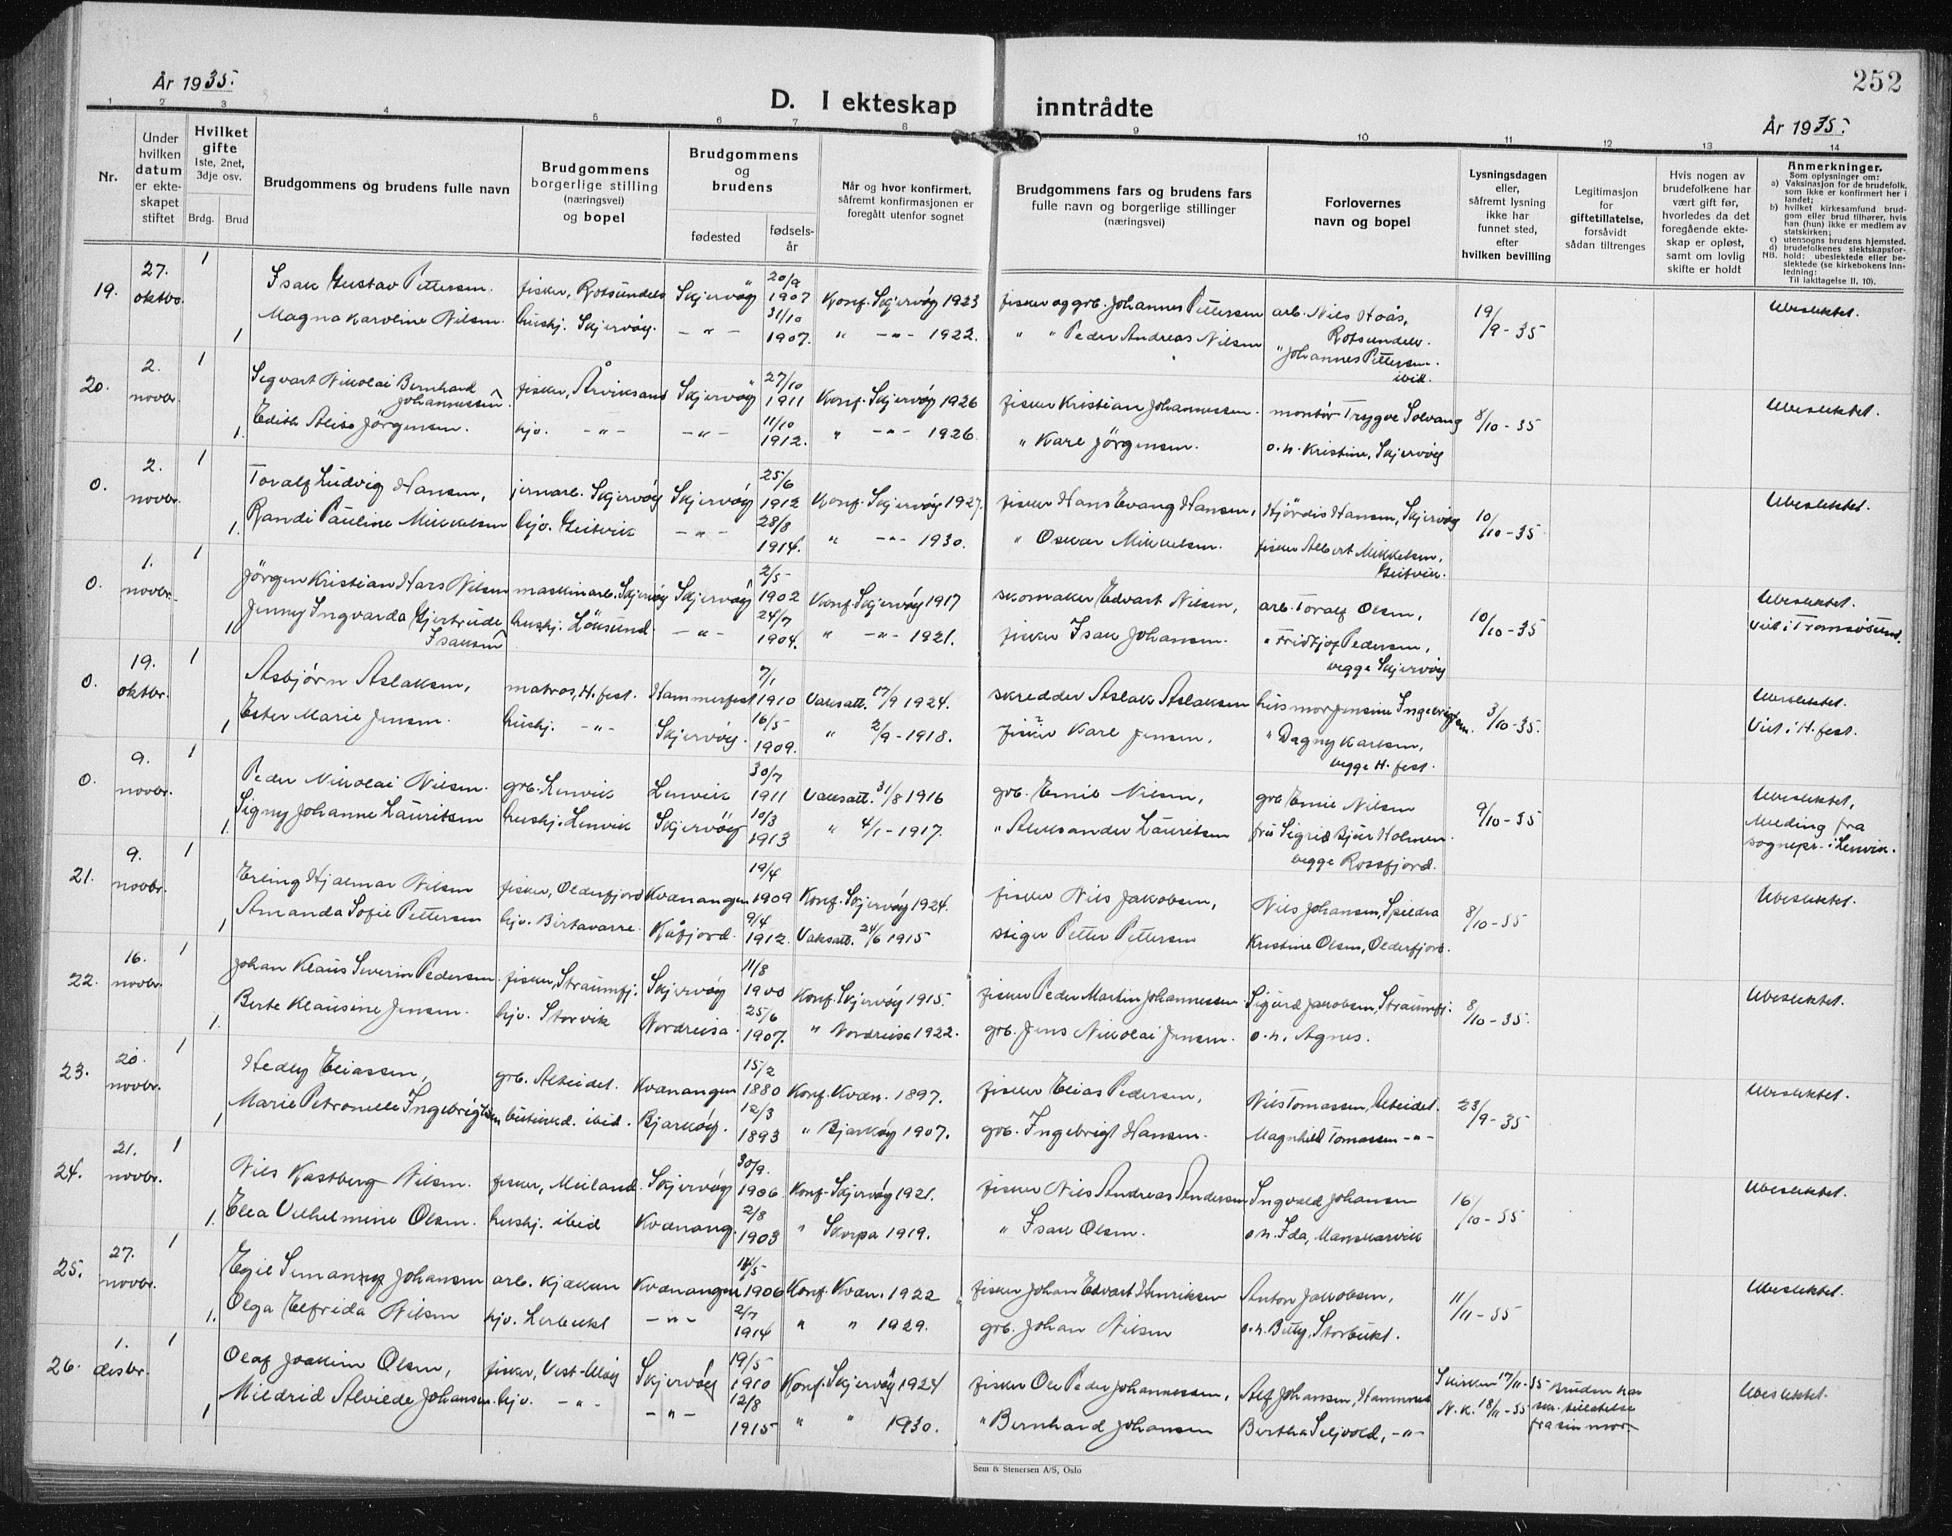 252
År 1935.
D. I ekteskap inntrådte
År 1935.
1 2 3 4 5 6 7 8 9 10 11 12 13 14
Nr.
Under hvilken datum er ekte-skapet stiftet
Hvilket gifte
1ste, 2net, 3dje osv.
Brdg. Brud
Brudgommens og brudens fulle navn
Brudgommens borgerlige stilling (næringsvei) og bopel
Brudgommens og brudens
fødested
fødsels-år
Når og hvor konfirmert, såfremt konfirmasjonen er foregått utenfor sognet
Brudgommens fars og brudens fars fulle navn og borgerlige stillinger (næringsvei)
Forlovernes navn og bopel
Lysningsdagen eller, såfremt lysning ikke har funnet sted, efter hvilken bevilling
Legitimasjon for giftetillatelse, forsåvidt sådan tiltrenges
Hvis nogen av brudefolkene har vært gift før, hvorledes da det foregående ekte-skap er opløst, samt om lovlig skifte er holdt
Anmerkninger.
Som oplysninger om:
a) Vaksinasjon for de brudefolk, som ikke er konfirmert her i landet;
b) hvilket kirkesamfund brud-gom eller brud tilhører, hvis han (hun) ikke er medlem av statskirken;
c) utensogns brudens hjemsted.
d) brudefolkenes slektskapsfor-hold: ubeslektede eller be-slektede (se kirkebokens Inn-ledning:
NB. Til iakttagelse II, 10).
19. 27. oktbr. 1 Isak Gustav Pettersen. fisker, Rotsundelv Skjervøy 20/9 1907 Konf. Skjervøy 1923 fisker og grb. Johannes Pettersen arb. Nils Hoås, Rotsundelv. 19/9-35 Ubeslektet.
1 Magna Karoline Nilsen. hushj. Skjervøy. -"- 31/10 1907. " -"- 1922. " " Peder Andreas Nilsen " Johannes Pettersen ibid.
20. 2. novbr. 1 Sigvart Nikolai Bernhard Johannessen. fisker, Årviksand Skjervøy 27/10 1911 Konf. Skjervøy 1926 fisker Kristian Johannessen. montør Trygve Solvang 8/10-35 Ubeslektet.
1. Edith Alise Jörgensen. hjv. -"- -"- 11/10 1912. " -"- 1926. " Karl Jörgensen. o. h. Kristine, Skjervøy
0. 2. novbr. 1 Toralf Ludvig Hansen, jernarb. Skjervøy Skjervøy 25/6 1912 Konf. Skjervøy 1927. fisker Hans Evang Hansen, Hjördis Hansen, Skjervøy 10/10-35 Ubeslektet.
1. Randi Pauline Mikkelsen hjv. Geitvik -"- 28/8 1914. " -"- 1930. " Oskar Mikkelsen. fisker Albert Mikkelsen, Geitvik.
0. 1. novbr. 1 Jörgen Kristian Hans Nilsen maskinarb. Skjervøy Skjervøy 2/5 1902 Konf. Skjervøy 1917 skomaker Edvart Nilsen, arb. Toralf Olsen, 10/10-35 Ubeslektet.
1 Jenny Ingvarda Gjertrude Isaksen hushj. Löksund. -"- 24/7 1904. " -"- 1921. fisker Isak Johansen. " Fridtjof Pedersen, begge Skjervøy Viet i Tromsøsund.
0. 19. oktbr. 1 Asbjørn Aslaksen, matros, H.fest. Hammerfest 7/1 1910 Vaksatt. 17/9 1924. skredder Aslak Aslaksen husmor Jensine Ingebrigtsen. 3/10-35. Ubeslektet.
1 Ester Marie Jensen. hushj. -"- Skjervøy. 16/5 1909. " 2/9-1918. fisker Karl Jensen, " Dagny Karlsen, begge H.fest. Viet i H.fest.
0. 9. novbr. 1 Peder Nikolai Nilsen. grb. Lenvik Lenvik 30/7 1911 Vaksatt. 31/8 1916 grb. Emil Nilsen, grb Emil Nilsen 9/10-35 Ubeslektet,
1. Signy Johanne Lauritsen hushj. Lenvik Skjervøy 10/3 1913 " 4/1-1917. " Aleksander Lauritsen fru Sigrid Bjur Holmen begge Rossfjord. Melding fra sognepr. i Lenvik.
21. 9. novbr. 1 Erling Hjalmar Nilsen fisker, Olderfjord Kvænangen 19/4 1909 Konf. Skjervøy 1924. fisker Nils Jakobsen, Nils Johansen, Spildra 8/10-35 Ubeslektet.
1 Amanda Sofie Pettersen hjv. Birtavarre. Kåfjord. 9/4 1912. Vaksatt. 24/6 1915 stiger Petter Pettersen Kristine Olsen, Olderfjord.
22. 16. novbr. 1 Johan Klaus Severin Pedersen. fisker, Straumfj. Skjervøy 11/8 1900 Konf. Skjervøy 1915. fisker Peder Martin Johannessen. Sigurd Jakobsen, Straumfj. 8/10-35. Ubeslektet.
1. Berte Klausine Jensen. hjv. Storvik Nordreisa. 25/6 1907. " Nordreisa 1922. grb. Jens Nikolai Jensen. o. h. Agnes.
23. 20. novbr. 1 Hedley Eliassen, grb. Alteidet. Kvænangen 15/2 1880 Konf. Kvæn. 1897. fisker Elias Pedersen, Nils Tomassen, Alteidet. 23/9-35 Ubeslektet.
1 Marie Petronelle Ingebrigtsen butikkd. ibid. Bjarkøy. 12/3 1893 " Bjarkøy 1907. grb. Ingebrigt Hansen. Magnhild Tomassen -"-
24. 21. novbr. 1 Nils Kastberg Nilsen. fisker, Meiland. Skjervøy 30/9. 1906 Konf. Skjervøy 1921. fisker Nils Andreas Andersen Ingvald Johansen 16/10-35 Ubeslektet.
1. Ella Vilhelmine Olsen. hushj. ibid Kvænang. 2/8 1903 " Skorpa 1919. " Isak Olsen. o. h. Ida, Manskarvik
25. 27. novbr. 1 Egil Johansen arb. Kjækan Kvænangen 14/5 1906 Konf. Kvæn. 1922 fisker Johan Edvart Henriksen Anton Jakobsen, 11/11-35 Ubeslektet.
1. Olga Elfrida Nilsen hjv. Lerbukt -"- 2/7 1914 " " 1929. grb. Johan Nilsen o. h. Storbukt.
26. 1. desbr. 1 Olaf Joakim Olsen, fisker, Vest-Uløy Skjervøy 19/5 1910 Konf. Skjervøy 1924 fisker Ole Peder Johannessen, Alf Johansen, Hamnnes Skirken 17/11-35 Bruden har Ubeslektet.
1 Mildrid Alvilde Johansen. hjv. -"- -"- 12/8 1915 " " 1930. " Bernhard Johansen Bertha Seljvold, -"- N. K. 18/11-35 skr. tillatelse fra sin mor.
Sem & Stenersen A/S, Oslo